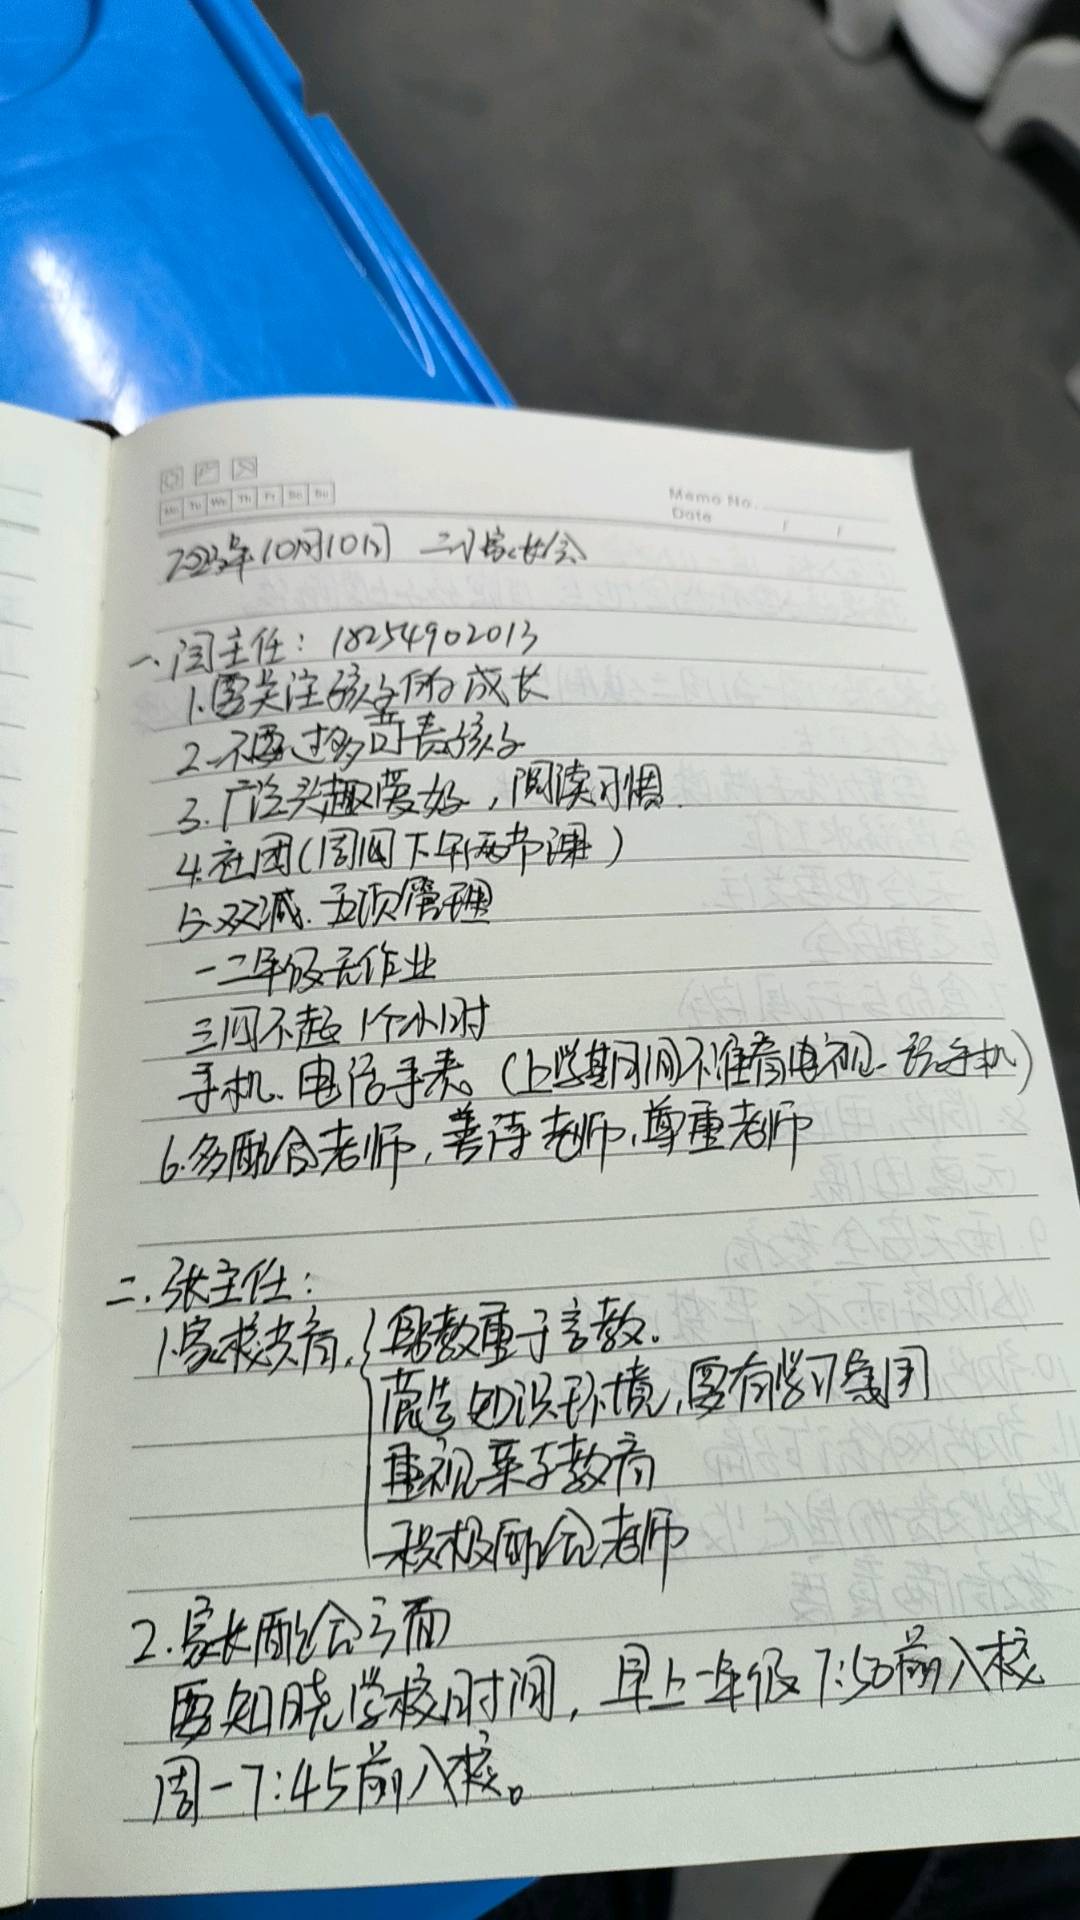 Mo Tu We Th Fr Sa Su
Memo No.
Date / /
2023年10月10日 二小家长会
一、闫主任：18254902013
1.要关注孩子的成长
2.不要过多苛责孩子
3.广泛兴趣爱好，阅读习惯.
4.社团(周四下午两节课)
5.双减.五项管理
一二年级无作业
三四不超1个小时
手机、电话手表。(上学期间不准看电视、玩手机)
6.多配合老师，善待老师，尊重老师
二.张主任：
1.家校共育.
身教重于言教.
营造知识环境，要有学习氛围
重视亲子教育
积极配合老师
2.家长配合方面
要知晓学校时间，早上一年级7:50前入校
周一7:45前入校。